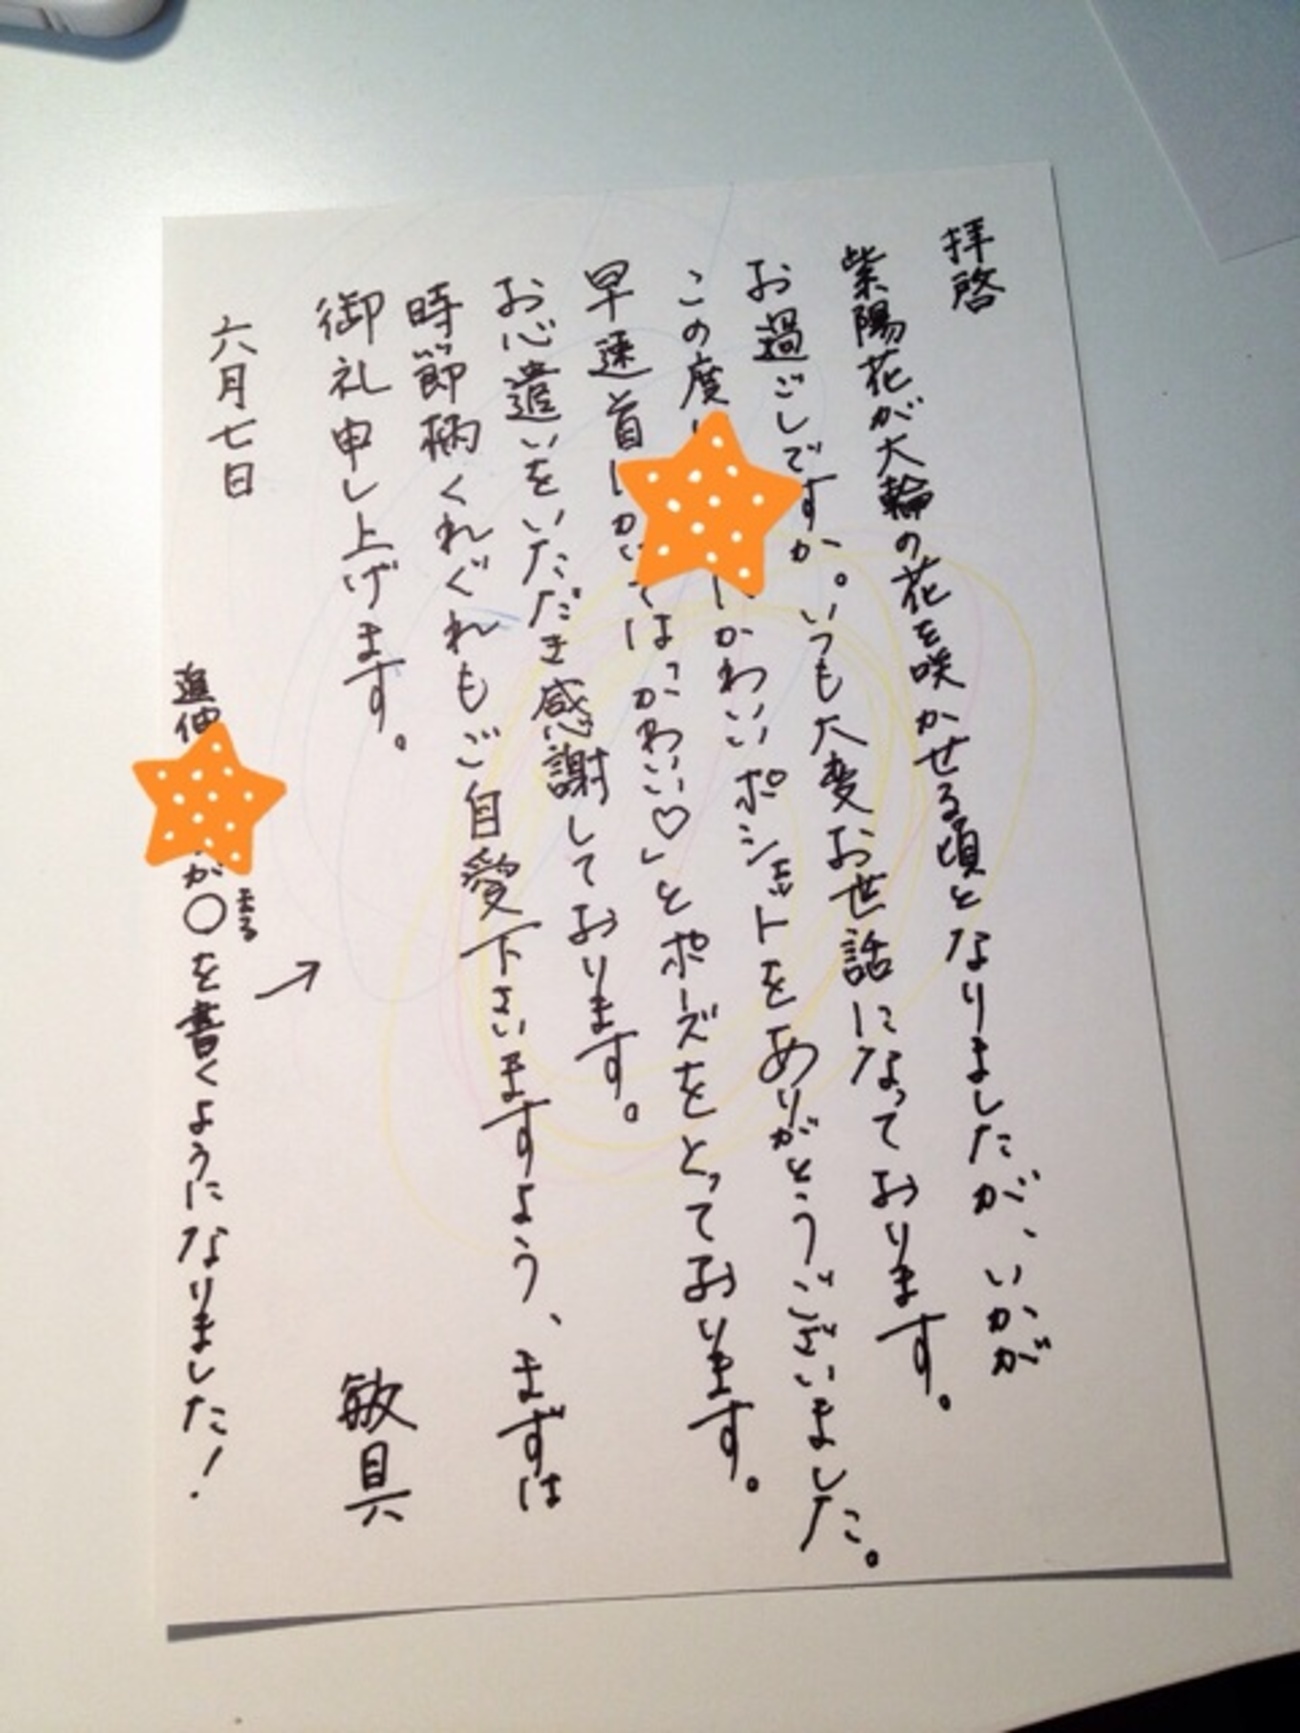 拝啓
紫陽花が大輪の花を咲かせる頃となりましたが、いかが
お過ごしですか。いつも大変お世話になっております。
この度 かわいいポシェットをありがとうございました。
早速首 かけては「かわいい♡」とポーズをとっております。
お心遣いをいただき感謝しております。
時節柄くれぐれもご自愛下さいますよう、まずは
御礼申し上げます。
敬具
六月七日
追伸
が○を書くようになりました!
まる